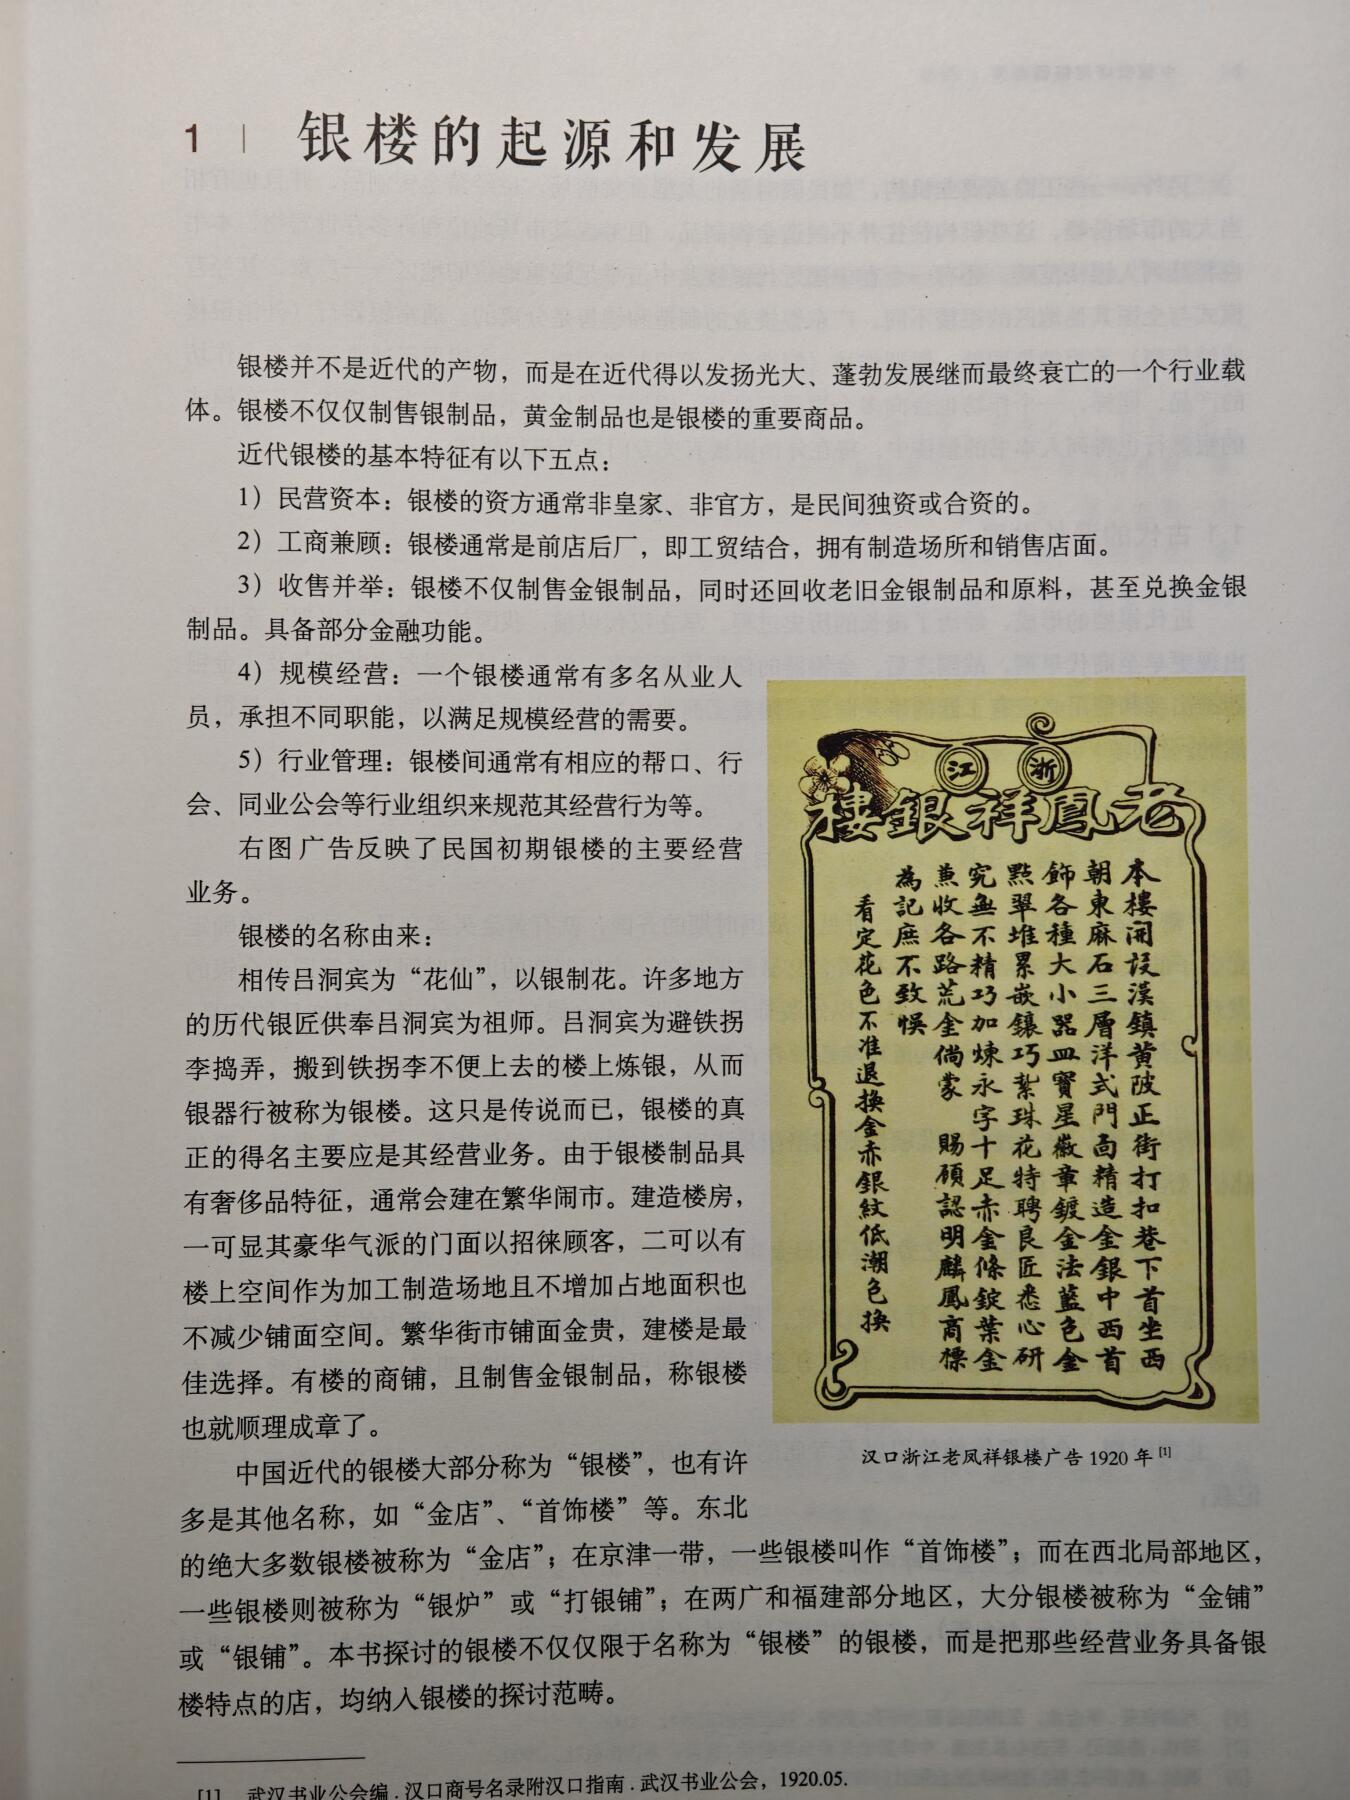 1 | 银楼的起源和发展
银楼并不是近代的产物，而是在近代得以发扬光大、蓬勃发展继而最终衰亡的一个行业载
体。银楼不仅仅制售银制品，黄金制品也是银楼的重要商品。
近代银楼的基本特征有以下五点：
1）民营资本：银楼的资方通常非皇家、非官方，是民间独资或合资的。
2）工商兼顾：银楼通常是前店后厂，即工贸结合，拥有制造场所和销售店面。
3）收售并举：银楼不仅制售金银制品，同时还回收老旧金银制品和原料，甚至兑换金银
制品。具备部分金融功能。
4）规模经营：一个银楼通常有多名从业人
员，承担不同职能，以满足规模经营的需要。
5）行业管理：银楼间通常有相应的帮口、行
会、同业公会等行业组织来规范其经营行为等。
右图广告反映了民国初期银楼的主要经营
业务。
银楼的名称由来：
相传吕洞宾为“花仙”，以银制花。许多地方
的历代银匠供奉吕洞宾为祖师。吕洞宾为避铁拐
李捣弄，搬到铁拐李不便上去的楼上炼银，从而
银器行被称为银楼。这只是传说而已，银楼的真
正的得名主要应是其经营业务。由于银楼制品具
有奢侈品特征，通常会建在繁华闹市。建造楼房，
一可显其豪华气派的门面以招徕顾客，二可以有
楼上空间作为加工制造场地且不增加占地面积也
不减少铺面空间。繁华街市铺面金贵，建楼是最
佳选择。有楼的商铺，且制售金银制品，称银楼
也就顺理成章了。
中国近代的银楼大部分称为“银楼”，也有许
多是其他名称，如“金店”、“首饰楼”等。东北
的绝大多数银楼被称为“金店”；在京津一带，一些银楼叫作“首饰楼”；而在西北局部地区，
一些银楼则被称为“银炉”或“打银铺”；在两广和福建部分地区，大分银楼被称为“金铺”
或“银铺”。本书探讨的银楼不仅仅限于名称为“银楼”的银楼，而是把那些经营业务具备银
楼特点的店，均纳入银楼的探讨范畴。
浙江
老鳳祥銀樓
本樓開設漢鎮黄陂正街打扣巷下首坐西
朝東麻石三層洋式門面精造金銀中西首
飾各種大小器皿寶星徽章鍍金法藍色金
點翠堆累嵌鑲巧紮珠花特聘良匠悉心研
究無不精巧加煉永字十足赤金條錠葉金
蕉收各路荒金倘蒙 賜顧認明麟鳳商標
為記庶不致悮
看定花色不准退換金赤銀紋低潮色換
汉口浙江老凤祥银楼广告 1920 年 [1]
[1] 武汉书业公会编．汉口商号名录附汉口指南．武汉书业公会，1920.05.